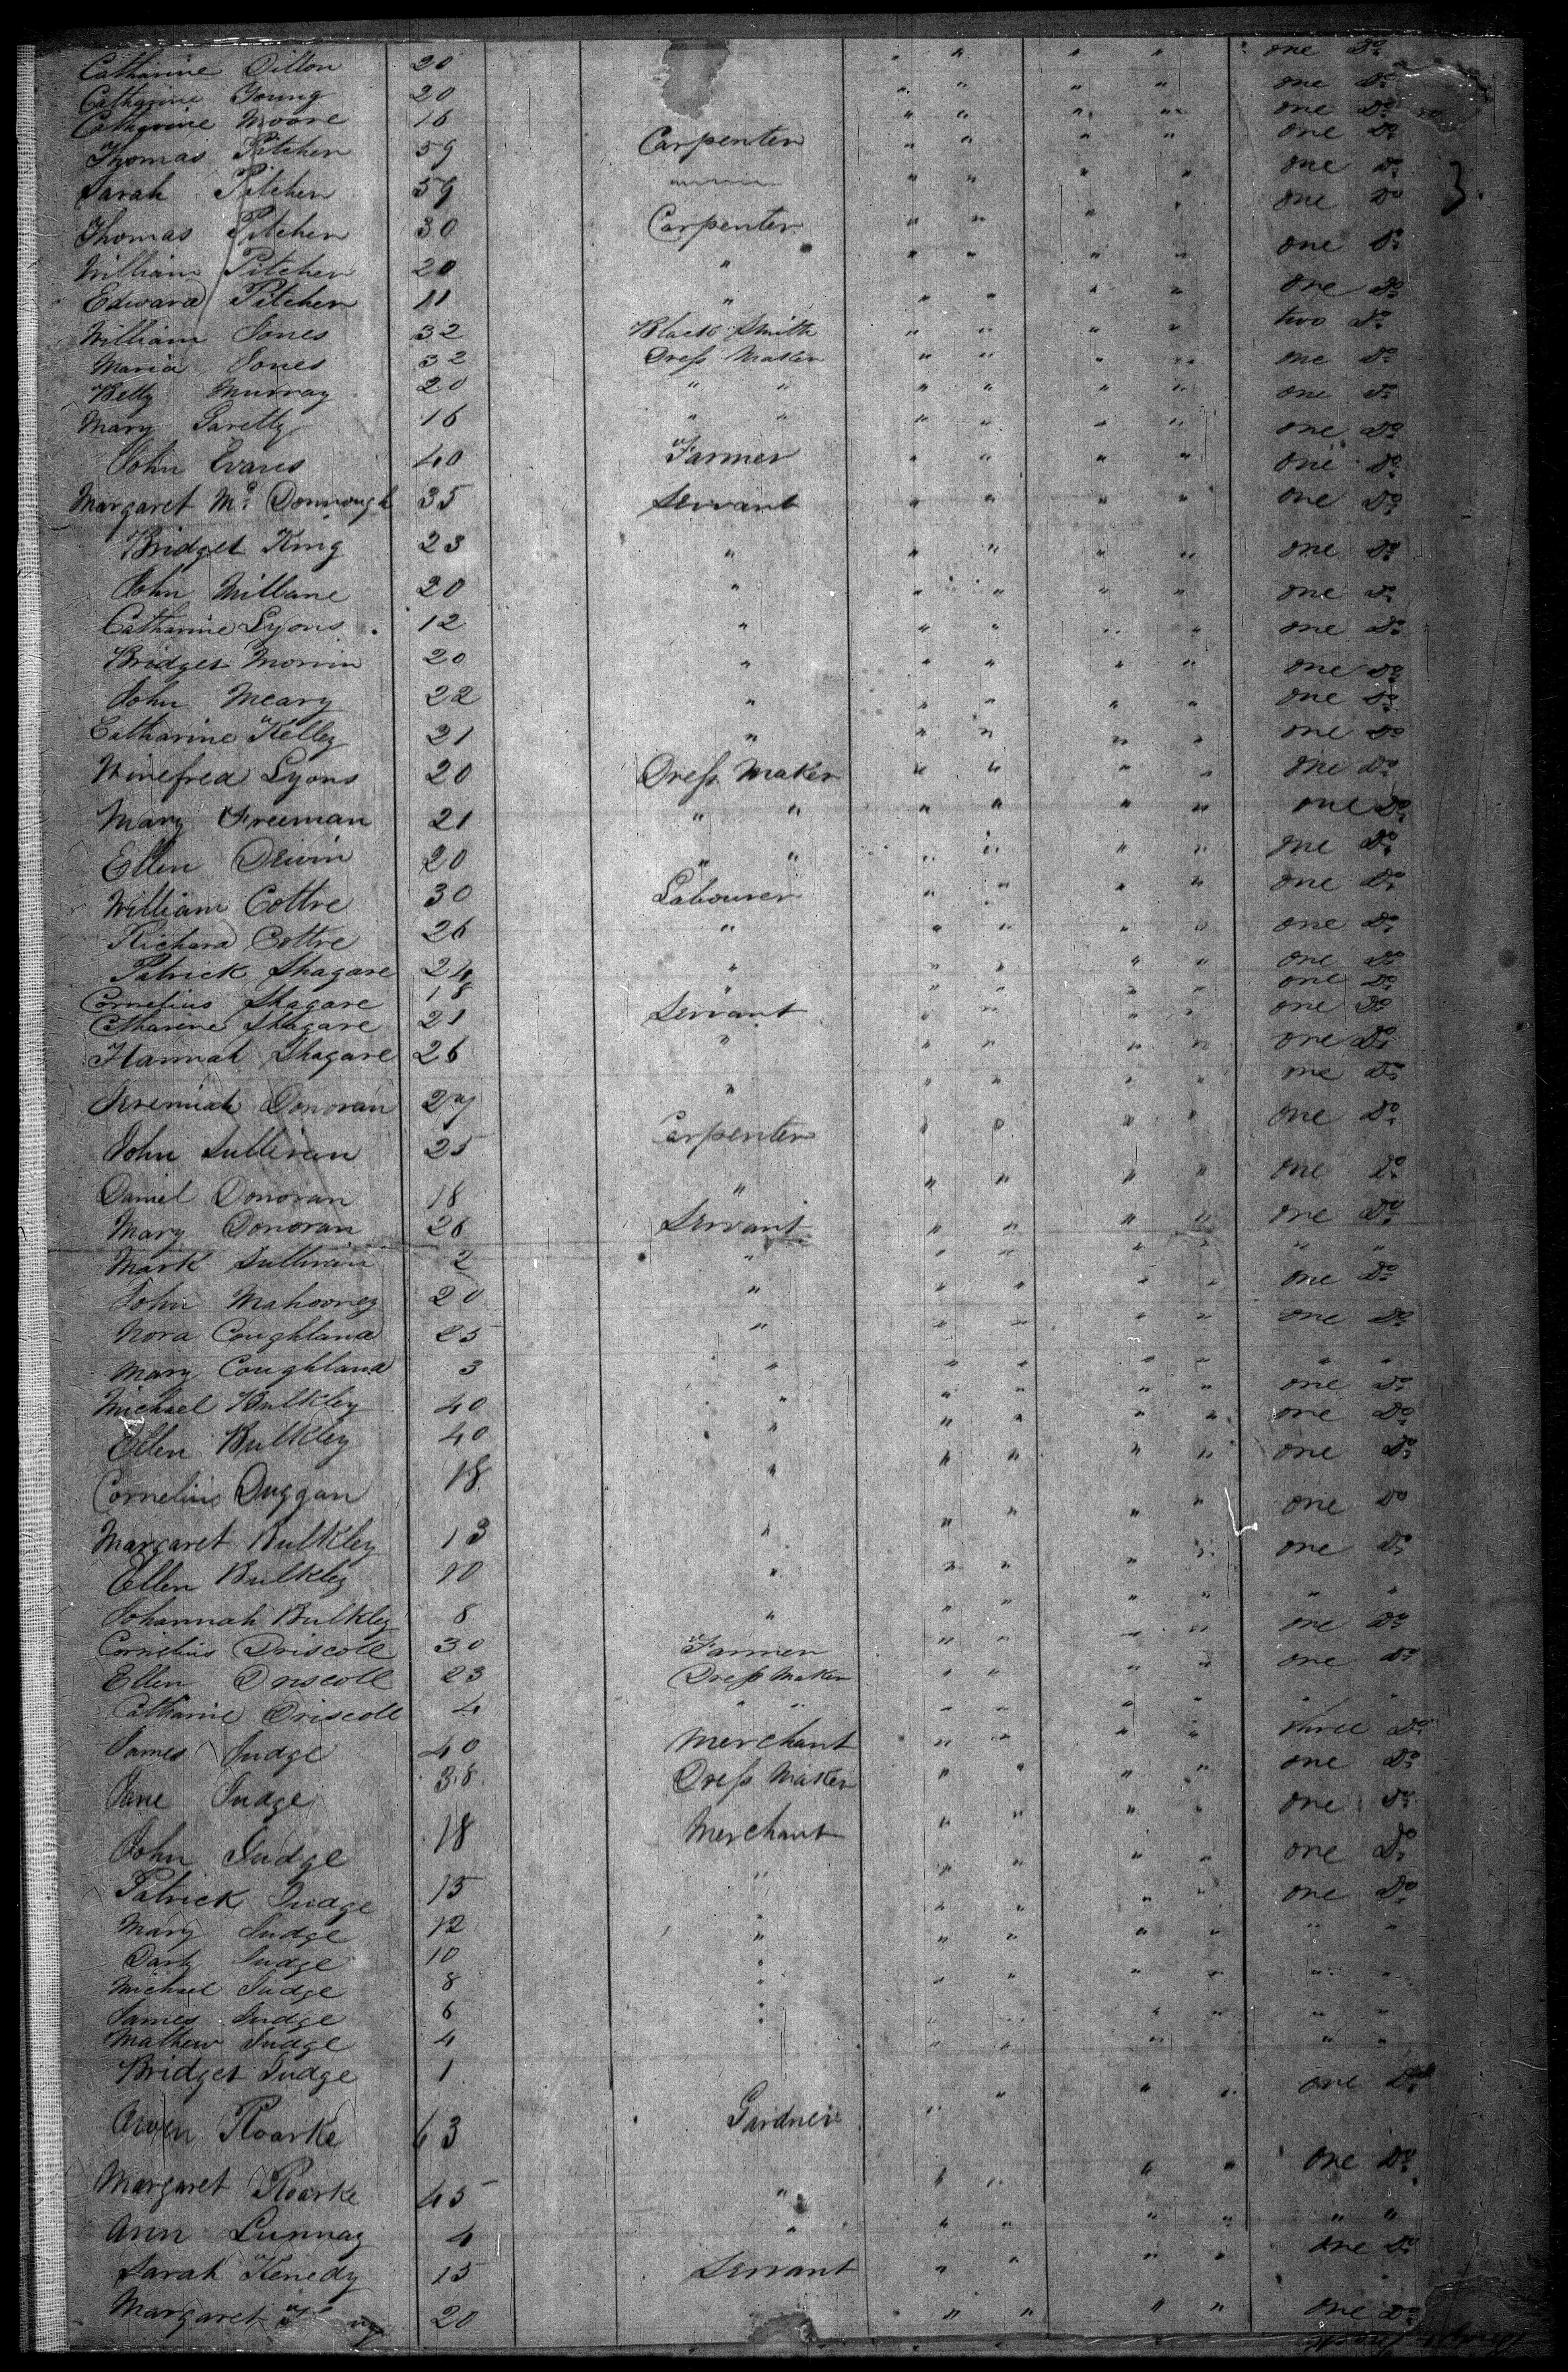 Catharine Dillon 20 " " " " one Do
Catharine Young 20 " " " " one Do
Catharine Moore 16 " " " " one Do
Thomas Pitcher 59 Carpenter " " " " one Do
Sarah Pitcher 59 " " " " one Do 3.
Thomas Pitcher 30 Carpenter " " " " one Do
William Pitcher 20 " " " " " one Do
Edward Pitcher 11 " " " " " one Do
William Jones 32 Black Smith " " " " two Do
Maria Jones 32 Dress Maker " " " " one Do
Betty Murray 20 " " " " " " one Do
Mary Garetty 16 " " " " " " one Do
John Evans 40 Farmer " " " " one Do
Margaret Mc Donnough 35 Servant " " " " one Do
Bridget King 23 " " " " " one Do
John Millane 20 " " " " " one Do
Catharine Lyons 12 " " " " " one Do
Bridget Morrin 20 " " " " " one Do
John Meary 22 " " " " " one Do
Catharine Kelley 21 " " " " " one Do
Winefred Lyons 20 Dress Maker " " " " one Do
Mary Freeman 21 " " " " " " one Do
Ellen Divin 20 " " " " " " one Do
William Cottre 30 Labourer " " " " one Do
Richard Cottre 26 " " " " " one Do
Patrick Shagare 24 " " " " " one Do
Cornelius Shagare 18 " " " " " one Do
Catharine Shagare 21 Servant " " " " one Do
Hannah Shagare 26 " " " " " one Do
Jeremiah Donovan 27 " " " " " one Do
John Sullivan 25 Carpenter " " " " one Do
Daniel Donovan 18 " " " " " one Do
Mary Donovan 26 Servant " " " " one Do
Mark Sullivan 2 " " " " " " "
John Mahooney 20 " " " " " one Do
Nora Coughland 25 " " " " " one Do
Mary Coughland 3 " " " " " " "
Michael Bulkley 40 " " " " " one Do
Ellen Bulkley 40 " " " " " one Do
Cornelius Duggan 18 " " " " " one Do
Margaret Bulkley 13 " " " " " one Do
Ellen Bulkley 10 " " " " " one Do
Johannah Bulkley 8 " " " " " " "
Cornelius Driscoll 30 Farmer " " " " one Do
Ellen Driscoll 23 Dress Maker " " " " one Do
Catharine Driscoll 4 " " " " " " " "
James Judge 40 Merchant " " " " three Do
Jane Judge 38 Dress Maker " " " " one Do
John Judge 18 Merchant " " " " one Do
Patrick Judge 15 " " " " " one Do
Mary Judge 12 " " " " " one Do
Judge 10 " " " " " " "
Michael Judge 8 " " " " " " "
James Judge 6 " " " " " " "
Mathew Judge 4 " " " " " " "
Bridget Judge 1
Owen Roarke 63 Gardner " " " " one Do
Margaret Roarke 45 " " " " " one Do
Ann Lunnay 4 " " " " " " "
Sarah Kenedy 15 Servant " " " " one Do
Margaret 20 " " " " one Do